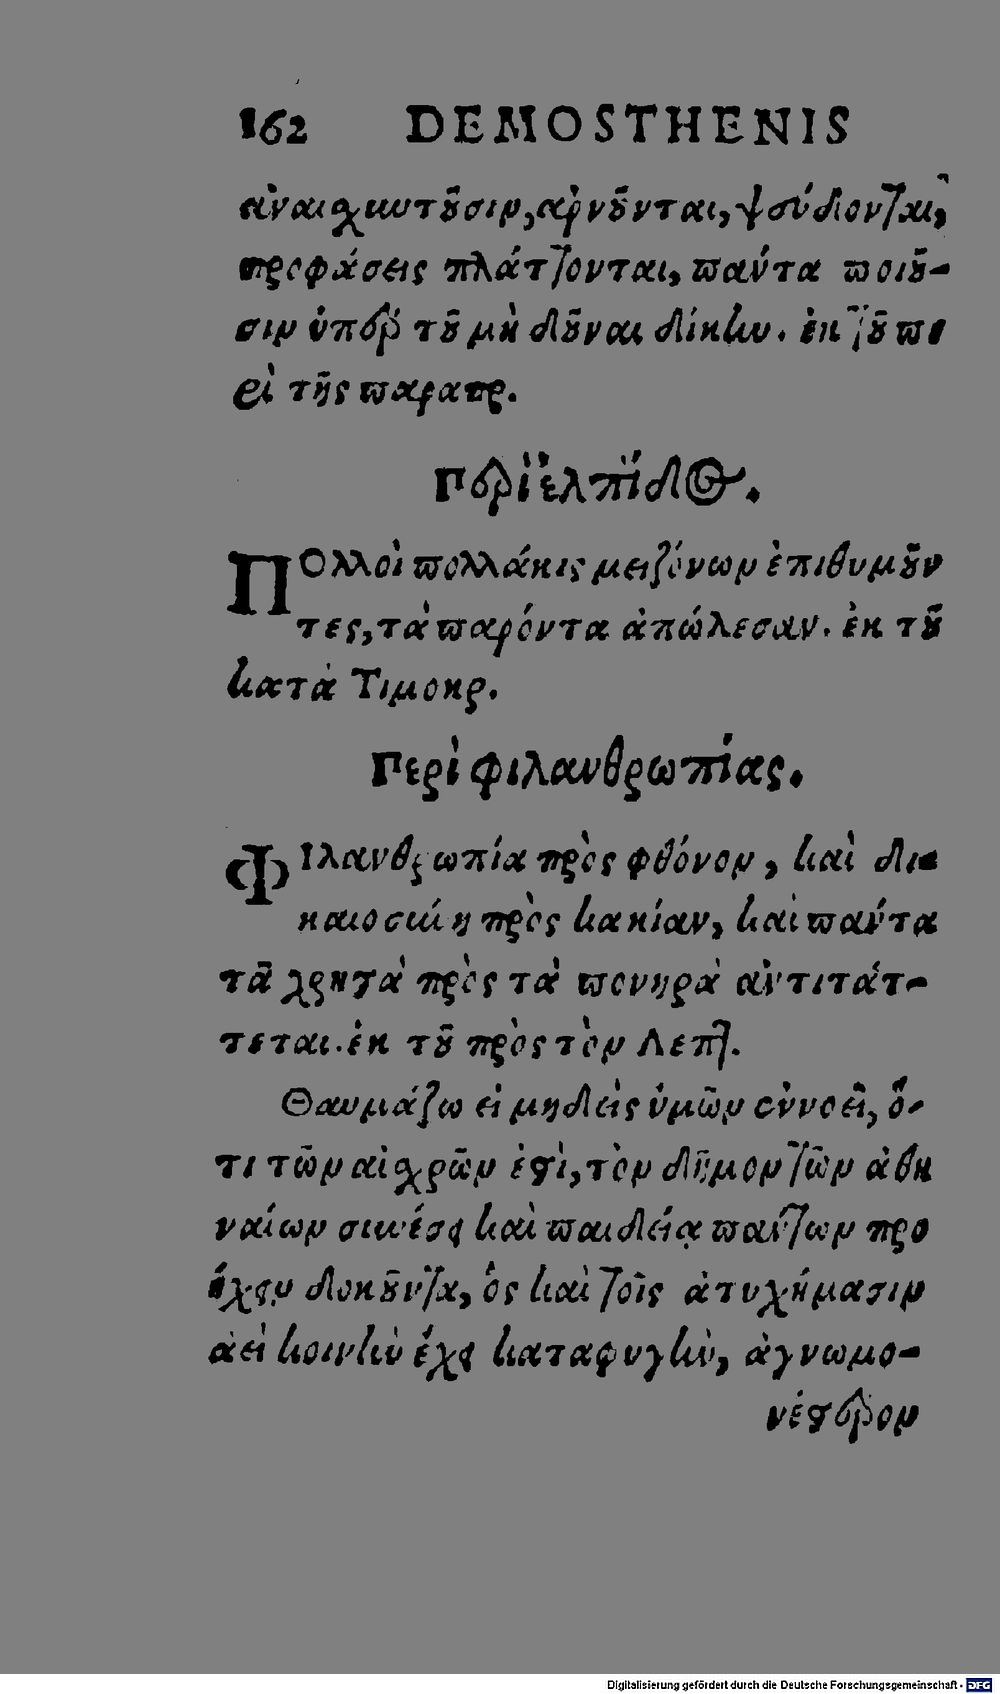 162 DEMOSTHENIS
αἰναισχυντοῦσιν, ἀρνοῦνται, ψεύδονται,
προφάσεις πλάττονται, πάντα ποιοῦ-
σιν ὑπὲρ τοῦ μὴ δοῦναι δίκην. ἐκ τοῦ πε
ρὶ τῆς παραπρ.
Περὶ ἐλπίδος.
ΠΟλλοὶ πολλάκις μειζόνων ἐπιθυμοῦν
τες, τὰ παρόντα ἀπώλεσαν. ἐκ τοῦ
κατὰ Τιμοκρ.
Περὶ φιλανθρωπίας.
ΦΙλανθρωπία πρὸς φθόνον, καὶ δι-
καιοσύνη πρὸς κακίαν, καὶ πάντα
τὰ χρηστὰ πρὸς τὰ πονηρὰ ἀντιτάτ-
τεται. ἐκ τοῦ πρὸς τὸν Λεπτ.
Θαυμάζω εἰ μηδεὶς ὑμῶν ἐννοεῖ, ὅ-
τι τῶν αἰσχρῶν ἐστὶ, τὸν δῆμον τῶν ἀθη
ναίων συνέσει καὶ παιδείᾳ πάντων προ
έχειν δοκοῦντα, ὃς καὶ τοῖς ἀτυχήμασιν
ἀεὶ κοινὴν ἔχει καταφυγὴν, ἀγνωμο-
νέστερον
Digitalisierung gefördert durch die Deutsche Forschungsgemeinschaft - DFG